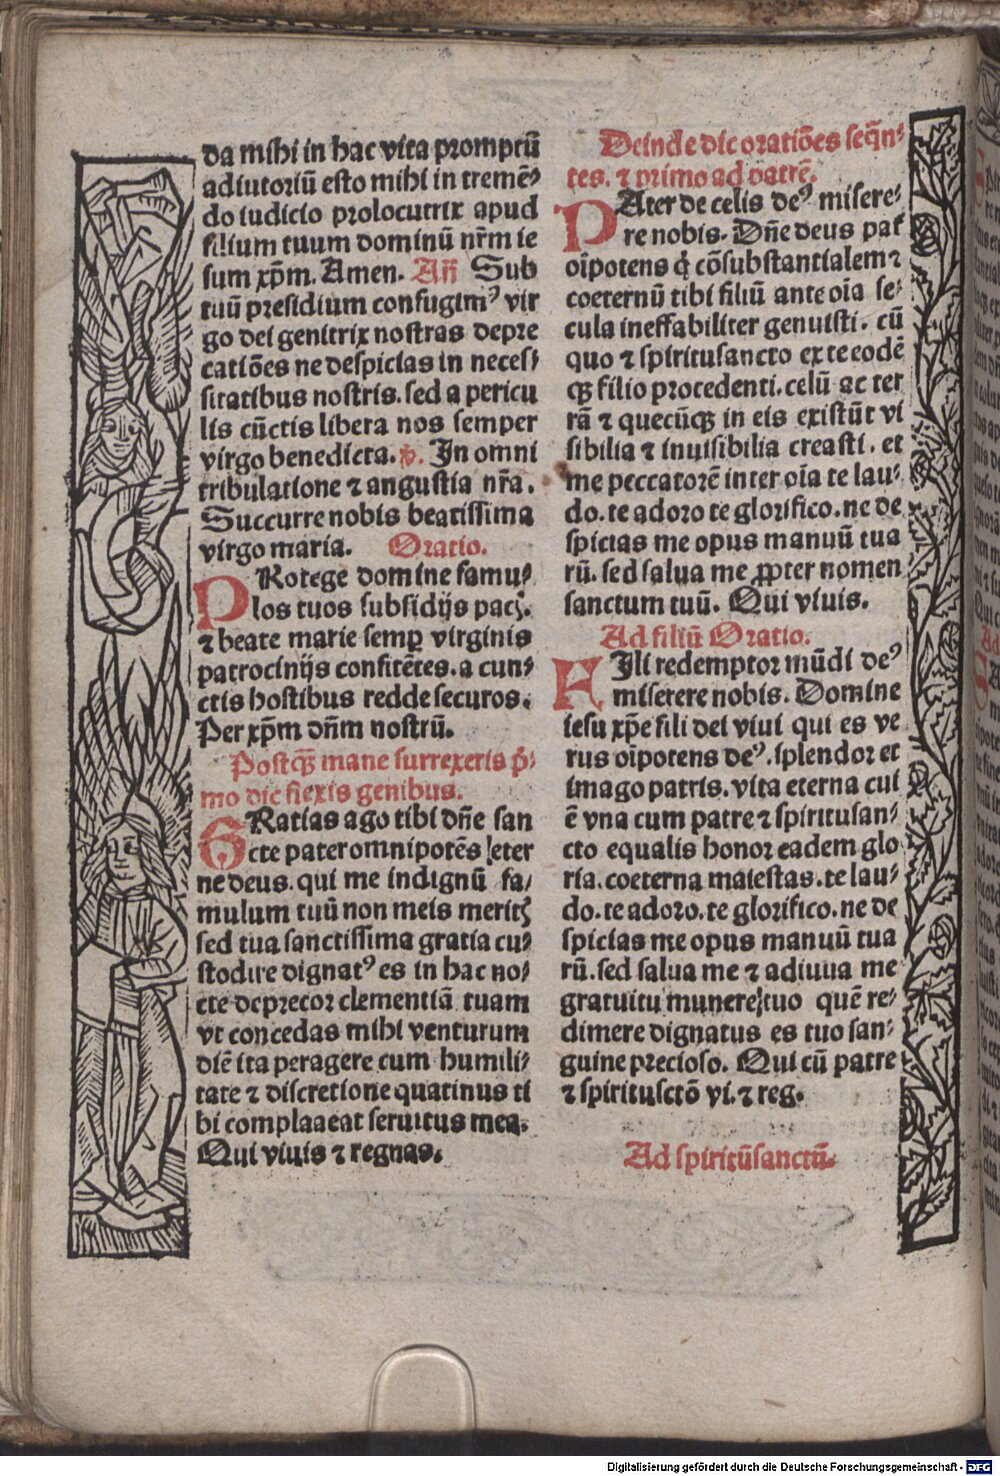 da mihi in hac vita promptū
adiutoriū esto mihi in tremē⸗
do iudicio prolocutrix apud
filium tuum dominū nr̄m ie
sum xp̄m. Amen. Añ Sub
tuū presidium confugimꝰ vir
go dei genitrix nostras depre
catiōes ne despicias in neces⸗
sitatibus nostris. sed a pericu
lis cūctis libera nos semper
virgo benedicta. ℣. In omni
tribulatione ⁊ angustia nr̄a.
Succurre nobis beatissima
virgo maria. Oratio.
PRotege domine famu⸗
los tuos subsidijs pacꝭ.
⁊ beate marie semꝑ virginis
patrocinijs confitētes. a cun⸗
ctis hostibus redde securos.
Per xp̄m dn̄m nostrū.
Postqꝫ mane surrexeris p̄⸗
mo dic flexis genibus.
GRatias ago tibi dn̄e san
cte pater omnipotēs eter
ne deus. qui me indignū fa⸗
mulum tuū non meis meritꝭ
sed tua sanctissima gratia cu⸗
stodire dignatꝰ es in hac no⸗
cte deprecor clementiā tuam
vt concedas mihi venturum
diē ita peragere cum humili⸗
tate ⁊ discretione quatinus ti
bi complaaeat seruitus mea.
Qui viuis ⁊ regnas.
Deinde dic oratiōes seq̄n⸗
tes. ⁊ primo ad patrē.
PAter de celis deꝰ misere⸗
re nobis. Dn̄e deus pat̄
oīpotens q̇ cōsubstantialem ⁊
coeternū tibi filiū ante oīa se⸗
cula ineffabiliter genuisti. cū
quo ⁊ spiritusancto ex te eodē
qꝫ filio procedenti. celū ac ter
rā ⁊ quecūqꝫ in eis existūt vi
sibilia ⁊ inuisibilia creasti. et
me peccatorē inter oīa te lau⸗
do. te adoro te glorifico. ne de
spicias me opus manuū tua
rū. sed salua me ꝓpter nomen
sanctum tuū. Qui viuis.
Ad filiū Oratio.
FIli redemptor mūdi deꝰ
miserere nobis. Domine
iesu xp̄e fili dei viui qui es ve
rus oīpotens deꝰ. splendor et
imago patris. vita eterna cui
ē vna cum patre ⁊ spiritusan⸗
cto equalis honor eadem glo
ria. coeterna maiestas. te lau⸗
do. te adoro. te glorifico. ne de
spicias me opus manuū tua
rū. sed salua me ⁊ adiuua me
gratuitu munere tuo quē re⸗
dimere dignatus es tuo san⸗
guine precioso. Qui cū patre
⁊ spirituscтō vi. ⁊ reg.
Ad spiritūsanctū.
Digitalisierung gefördert durch die Deutsche Forschungsgemeinschaft - DFG